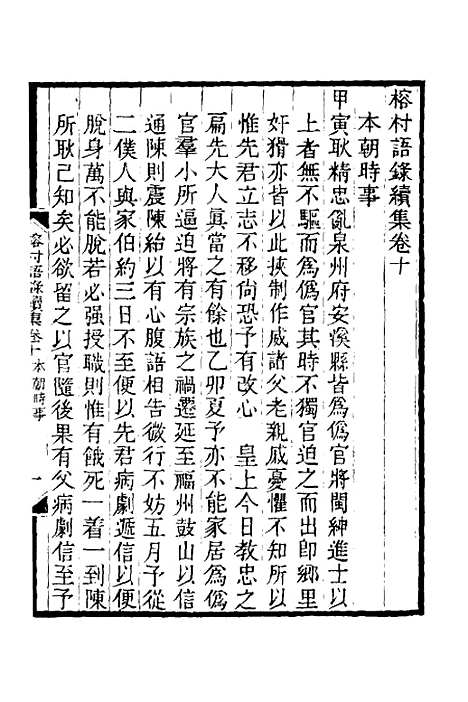 榕村語錄續集卷十
本朝時事
甲寅耿精忠亂泉州府安溪縣皆爲僞官將閩紳進士以
上者無不驅而爲僞官其時不獨官迫之而出卽鄉里
奸猾亦皆以此挾制作威諸父老親戚憂懼不知所以
惟先君立志不移尙恐予有改心　皇上今日教忠之
扁先大人眞當之有餘也乙卯夏予亦不能家居爲僞
官羣小所逼迫將有宗族之禍遷延至福州鼓山以信
通陳則震陳紿以有心腹語相告微行不妨五月予從
二僕人與家伯約三日不至便以先君病劇遞信以便
脫身萬不能脫若必强授職則惟有餓死一着一到陳
所耿已知矣必欲留之以官隨後果有父病劇信至予
榕村語錄續集卷十 本朝時事 一